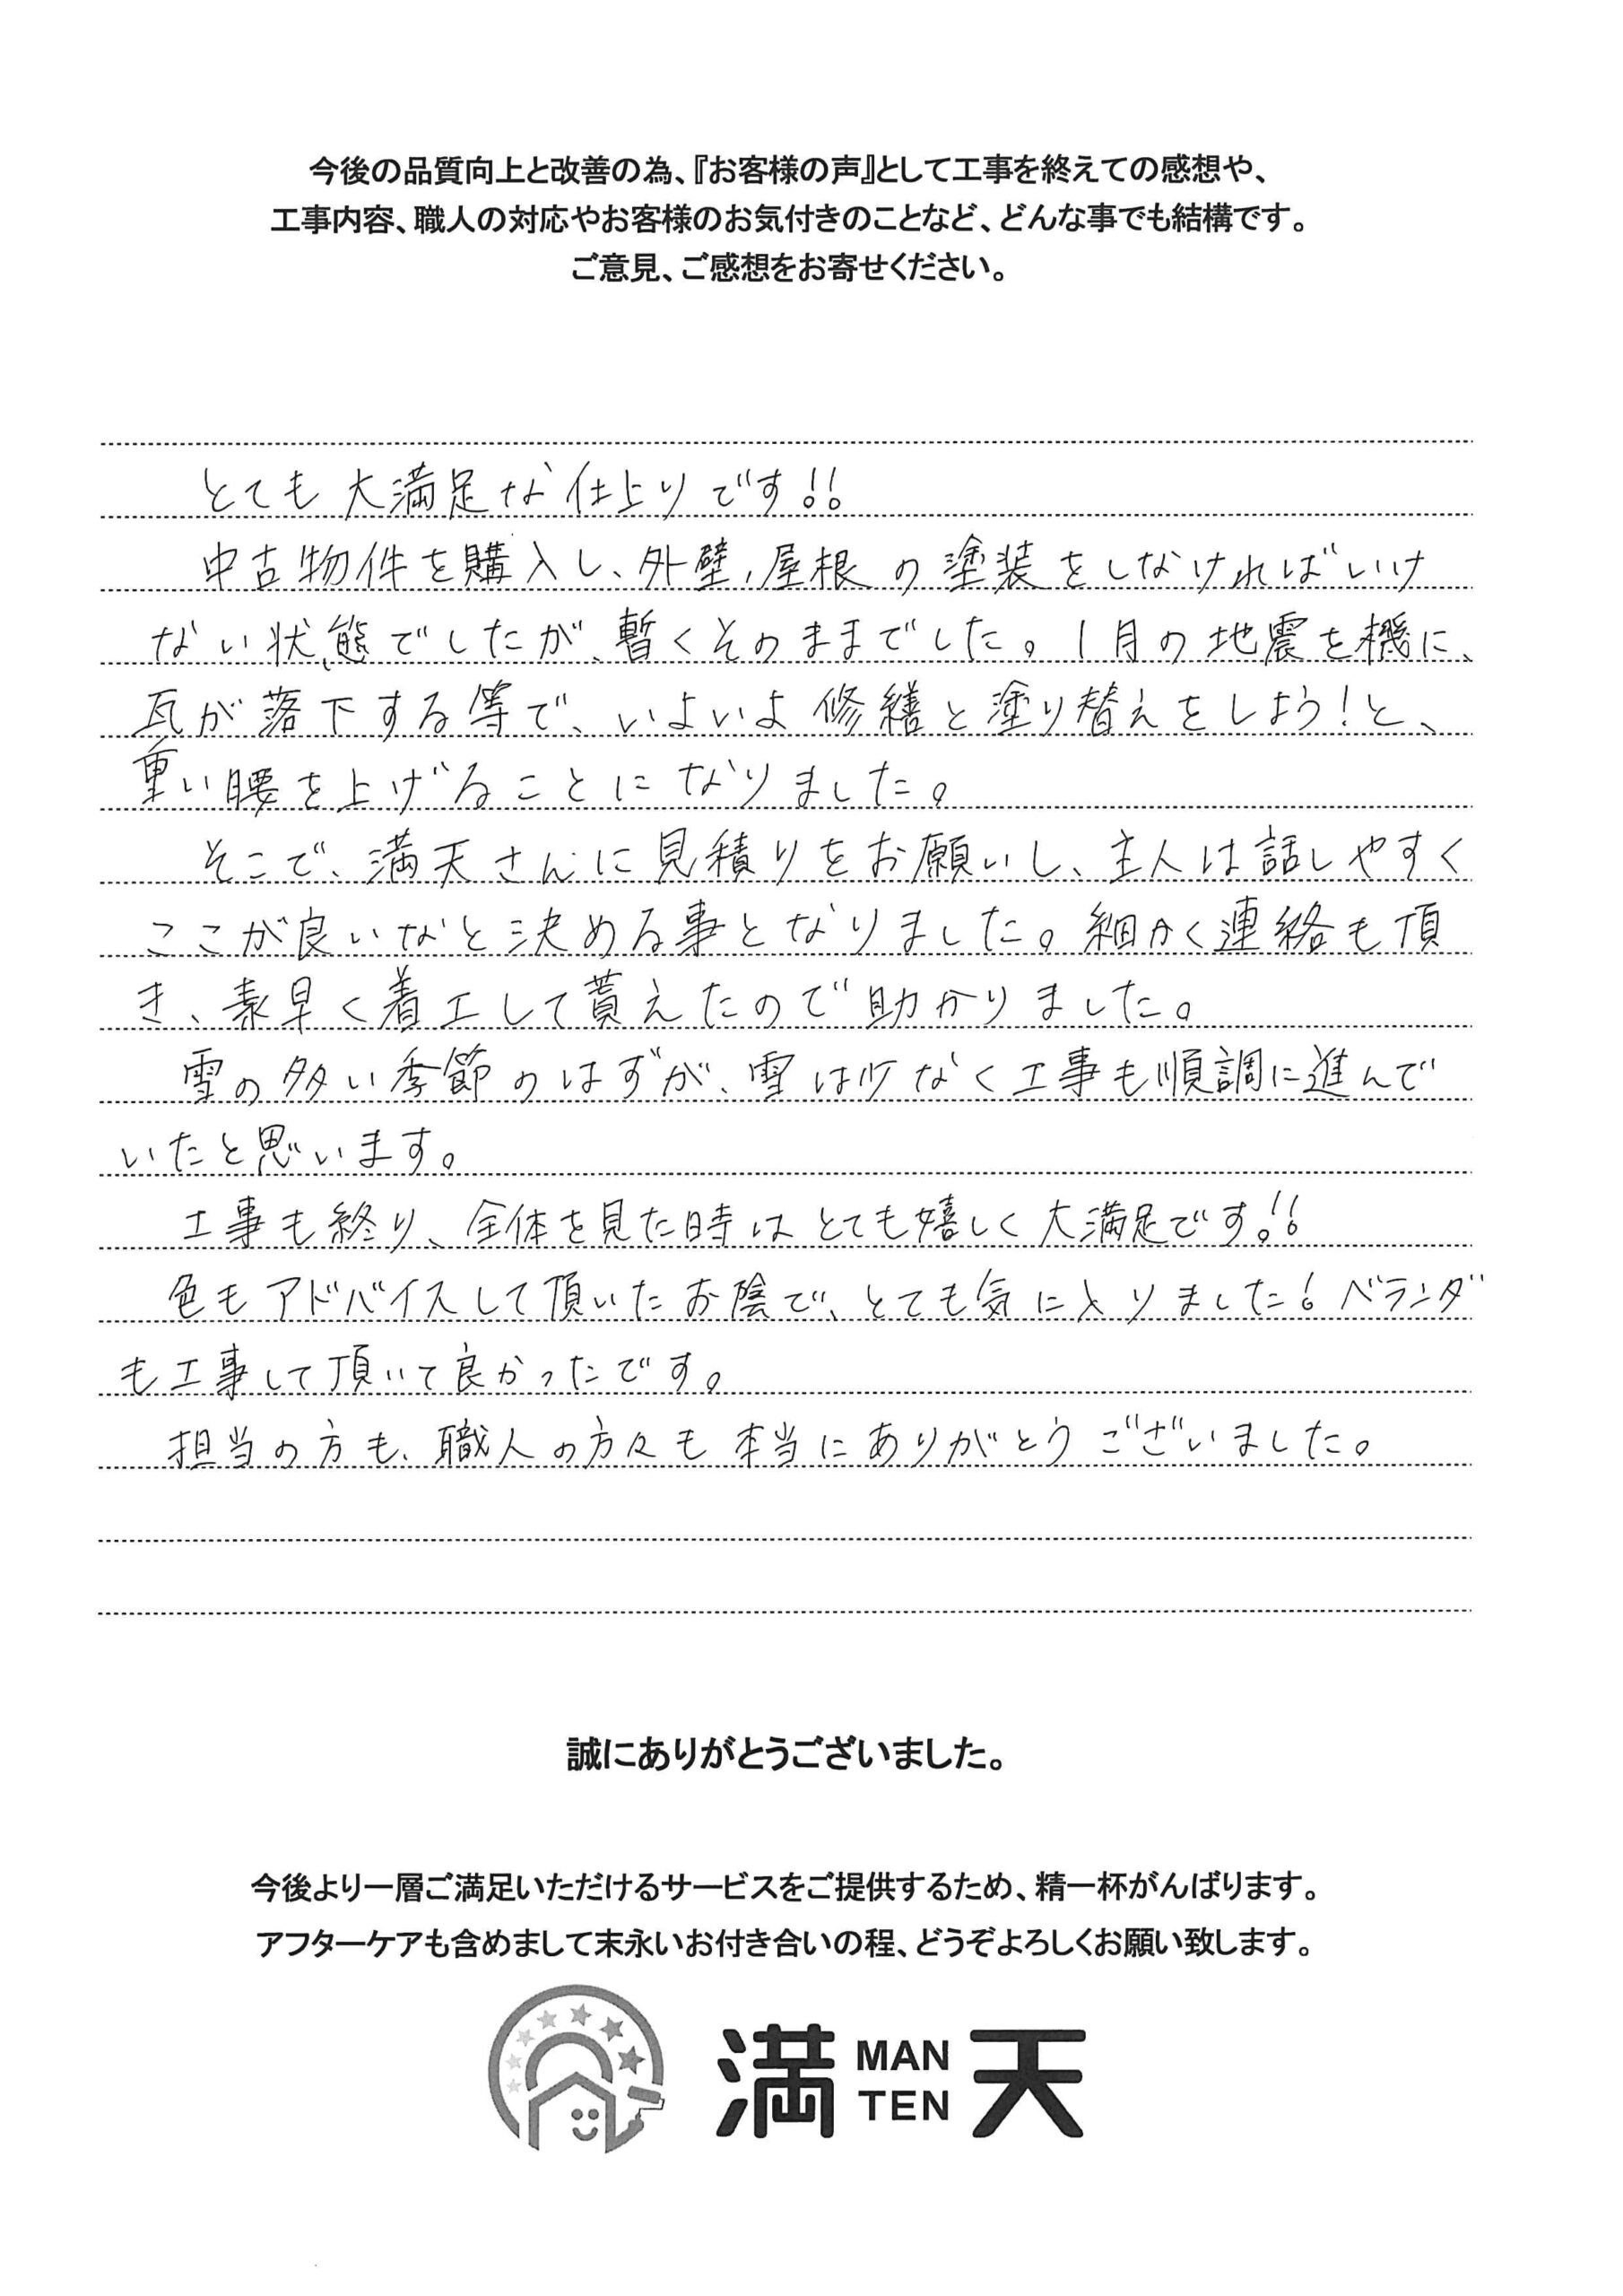 今後の品質向上と改善の為、『お客様の声』として工事を終えての感想や、
工事内容、職人の対応やお客様のお気付きのことなど、どんな事でも結構です。
ご意見、ご感想をお寄せください。
とても大満足な仕上りです!!
中古物件を購入し、外壁,屋根の塗装をしなければいけ
ない状態でしたが、暫くそのままでした。1月の地震を機に、
瓦が落下する等で、いよいよ修繕と塗り替えをしよう!と、
重い腰を上げることになりました。
そこで、満天さんに見積りをお願いし、主人は話しやすく
ここが良いなと決める事となりました。細かく連絡も頂
き、素早く着工して貰えたので助かりました。
雪の多い季節のはずが、雪は少なく工事も順調に進んで
いたと思います。
工事も終り、全体を見た時はとても嬉しく大満足です!!
色もアドバイスして頂いたお陰で、とても気に入りました!ベランダ
も工事して頂いて良かったです。
担当の方も、職人の方々も本当にありがとうございました。
誠にありがとうございました。
今後より一層ご満足いただけるサービスをご提供するため、精一杯がんばります。
アフターケアも含めまして末永いお付き合いの程、どうぞよろしくお願い致します。
満 MAN TEN 天